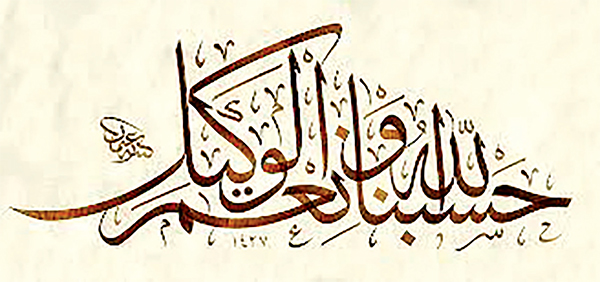 حسبنا الله ونعم الوكيل
١٤٢٧